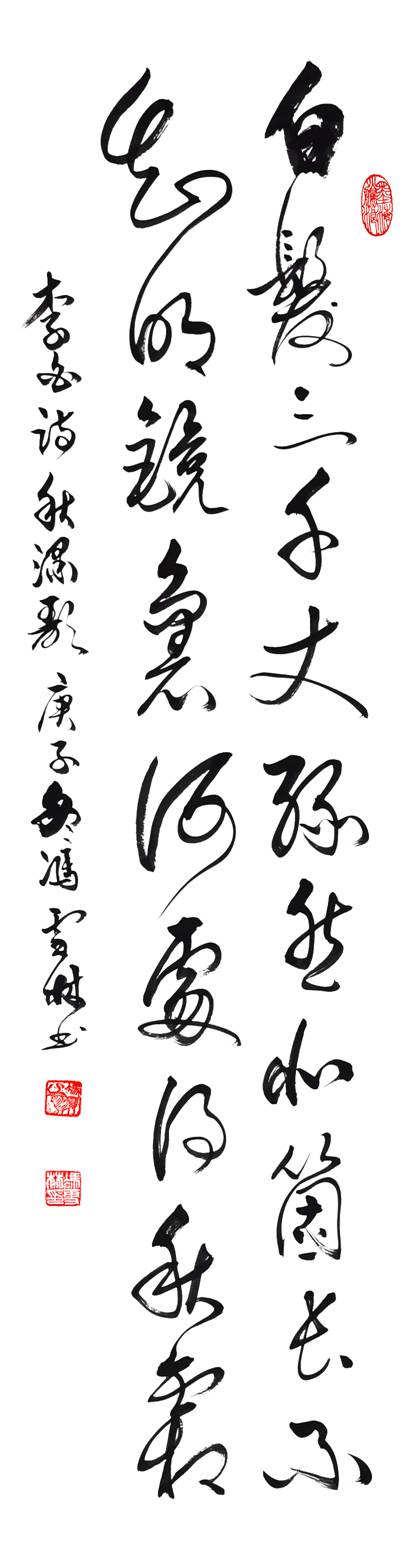 白髮三千丈緣愁似箇長不
知明鏡裏何處得秋霜
李白詩秋浦歌庚子冬馮雪林書